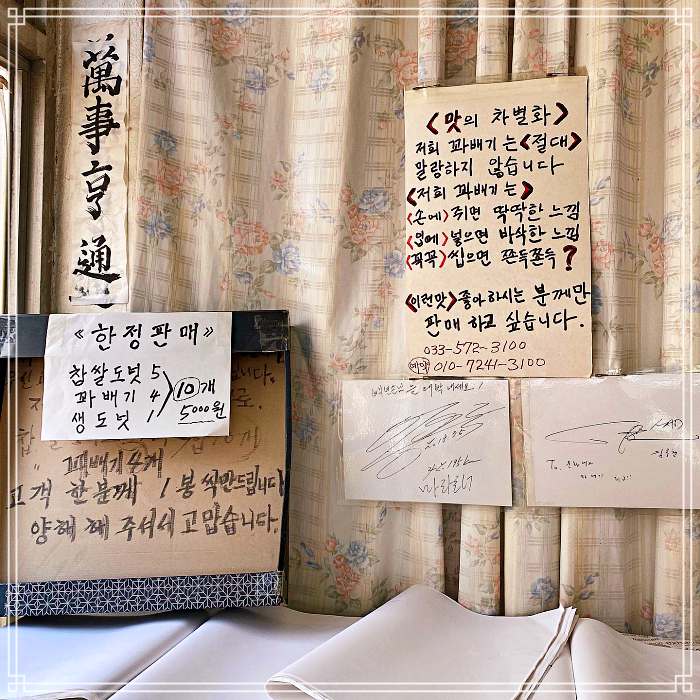 萬事亨通
《한정판매》
찹쌀도넛 5
꽈배기 4
생도넛 1
10개
5000원
꽈배기4개
고객 한분께 1봉씩만드립니다
양해 해 주셔서 고맙습니다.
<맛의 차별화>
저희 꽈배기는 <절대>
말랑하지 않습니다
<저희 꽈배기는>
<손에> 쥐면 딱딱한 느낌
<입에> 넣으면 바삭한 느낌
<꼭꼭> 씹으면 쫀득쫀득?
<이런맛> 좋아하시는 분께만
판매 하고 싶습니다.
033-572-3100
예약 010-7241-3100
To.